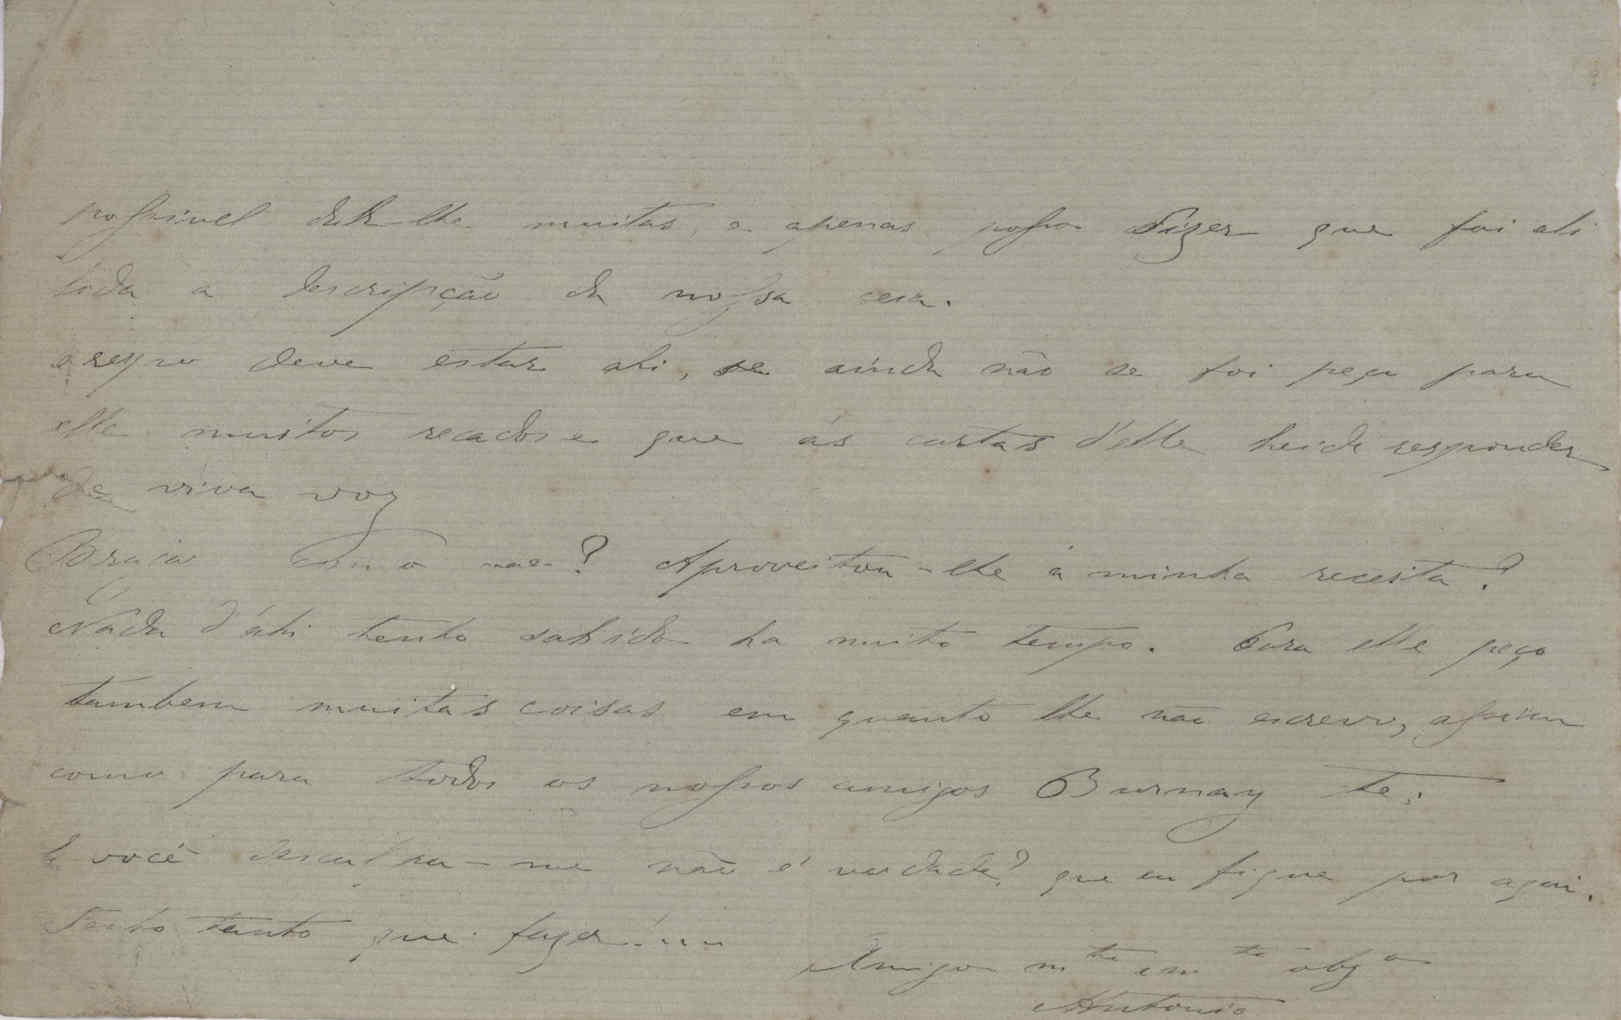 possivel dar-lhe muitas, e apenas posso dizer que foi ali
toda a descripção da nossa ceia.
deve estar ahi, se ainda não se foi peça para
elle muitos recados e que ás cartas d'elle heide responder
de viva voz
como vae? Aproveitou-lhe a minha receita?
Nada d'ahi tenho sabido ha muito tempo. Para elle peço
tambem muitas coisas em quanto lhe não escrevo, assim
como para todos os nossos amigos Burnay
E você desculpa-me não é verdade? que eu fique por aqui.
Tenho tanto que fazer!...
Amigo m.to obg.o
Antonio